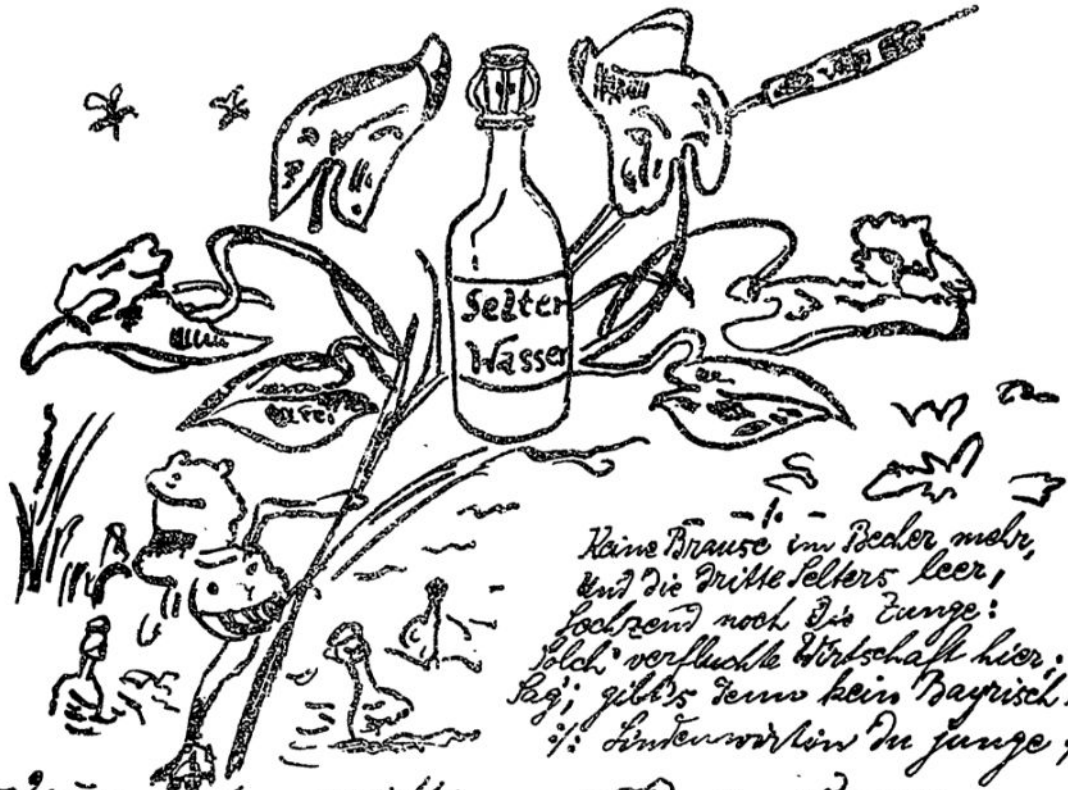 Selter
Wasser
Keine Brause im Becher mehr,
Und die dritte Selters leer,
Lechzend noch die Zunge:
Solch' verfluchte Wirtschaft hier;
Sag', gibt's denn kein Bayrisch
Lindenwirtin du junge